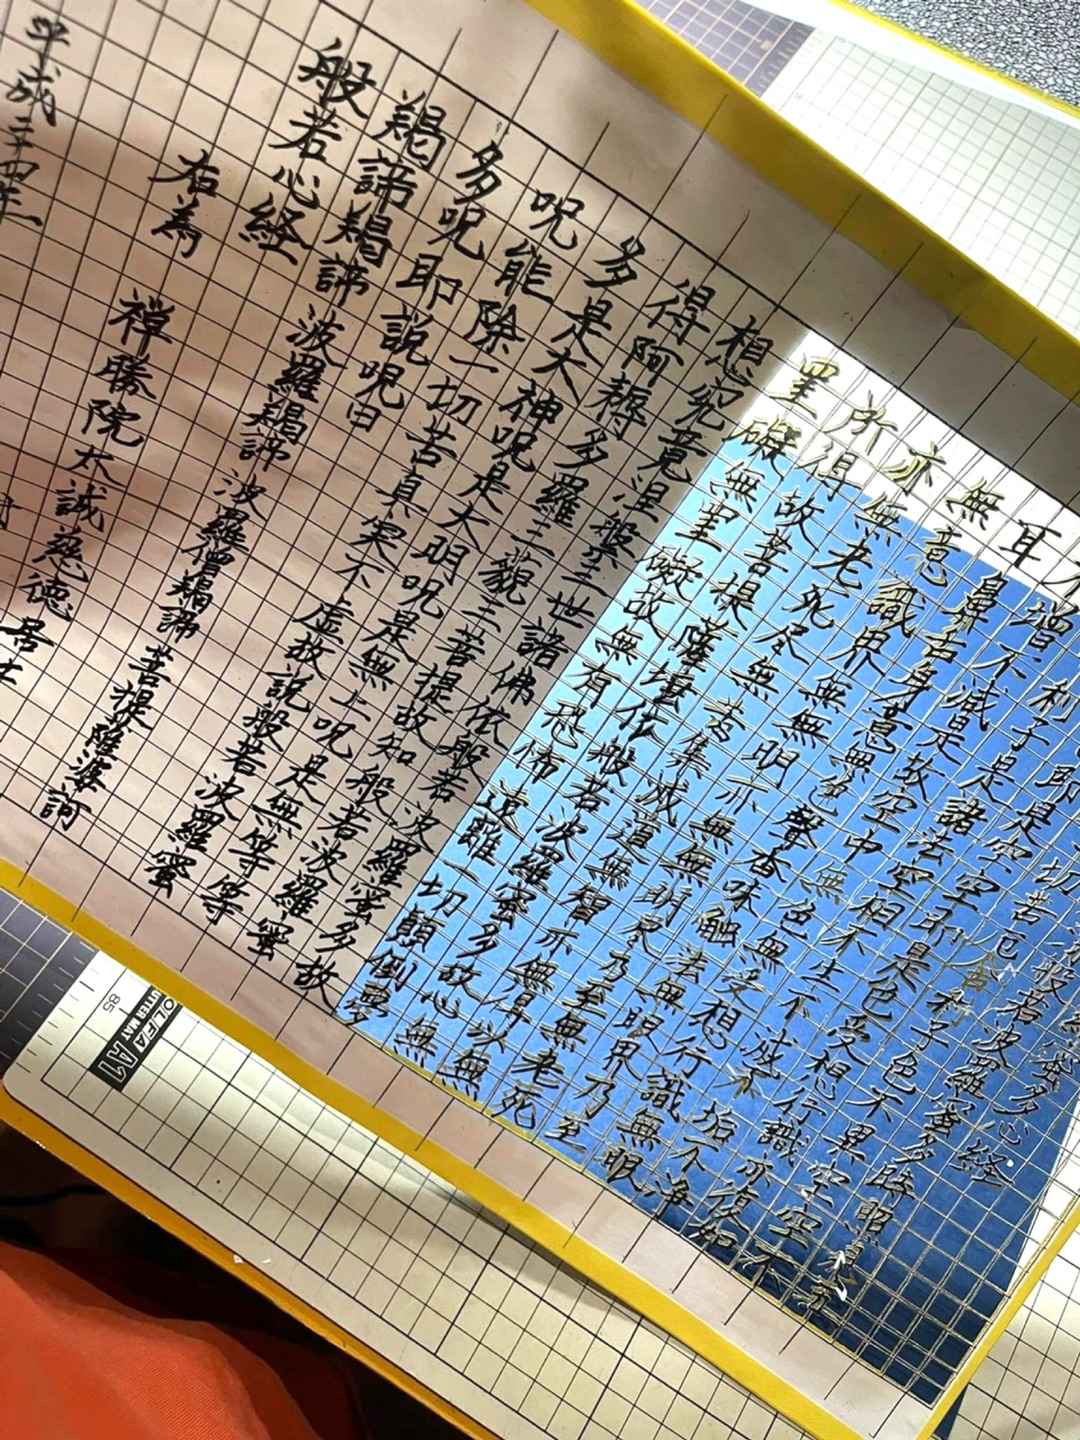 多心経
般若波羅蜜多時照見五
一切苦厄舎利子色不異空空不
即是空空即是色受想行識亦復如
利子是諸法空相不生不滅不垢不浄
不増不減是故空中無色無受想行識無眼
耳鼻舌身意無色聲香味触法無眼界乃至
無意識界無無明亦無無明尽乃至無老死
亦無老死尽無苦集滅道無智亦無得以無
所得故菩提薩埵依般若波羅蜜多故心無
罣礙無罣礙故無有恐怖遠離一切顛倒夢
想究竟涅槃三世諸佛依般若波羅蜜多故
得阿耨多羅三藐三菩提故知般若波羅蜜
多是大神呪是大明呪是無上呪是無等等
呪能除一切苦真実不虚故説般若波羅蜜
多呪即説呪曰
羯諦羯諦 波羅羯諦 波羅僧羯諦 菩提薩婆訶
般若心経
右為 禅勝院大誠慈徳居士
平成二十四年
OLFA
A1
85